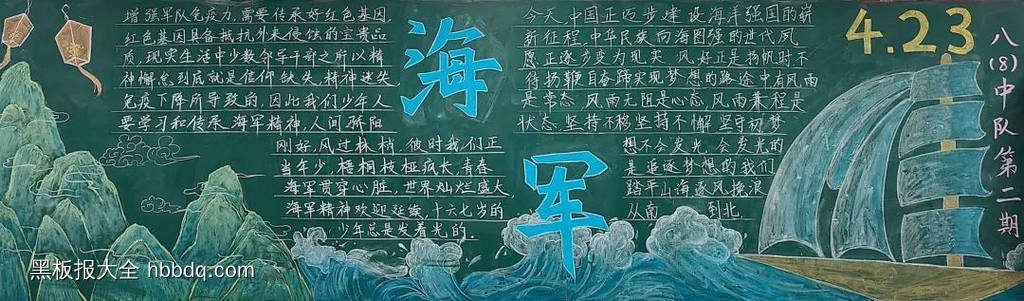 增强军队免疫力,需要传承好红色基因,
红色基因具备抵抗外来侵蚀的宝贵品
质,现实生活中少数领导干部之所以精
神懈怠,到底就是信仰缺失,精神迷失
免疫下降所导致的,因此我们少年人
要学习和传承海军精神,人间骄阳
刚好,风过林梢,彼时我们正
当年少,梧桐枝桠疯长,青春
海军贯穿心脏,世界灿烂盛大,
海军精神欢迎延续,十六七岁的
少年总是发着光的.
海
军
今天,中国正迈步建设海洋强国的崭
新征程,中华民族向海图强的世代夙
愿正逐步变为现实.风好正是扬帆时不
待扬鞭自奋蹄实现梦想的路途中有风雨
是常态,风雨无阻是心态,风雨兼程是
状态,坚持不移坚持不懈坚守初梦
想不会发光,会发光的
是追逐梦想的我们
踏平山海逐风挽浪
从南 到北.
4.23
八(8)中队第二期
黑板报大全 hbbdq.com